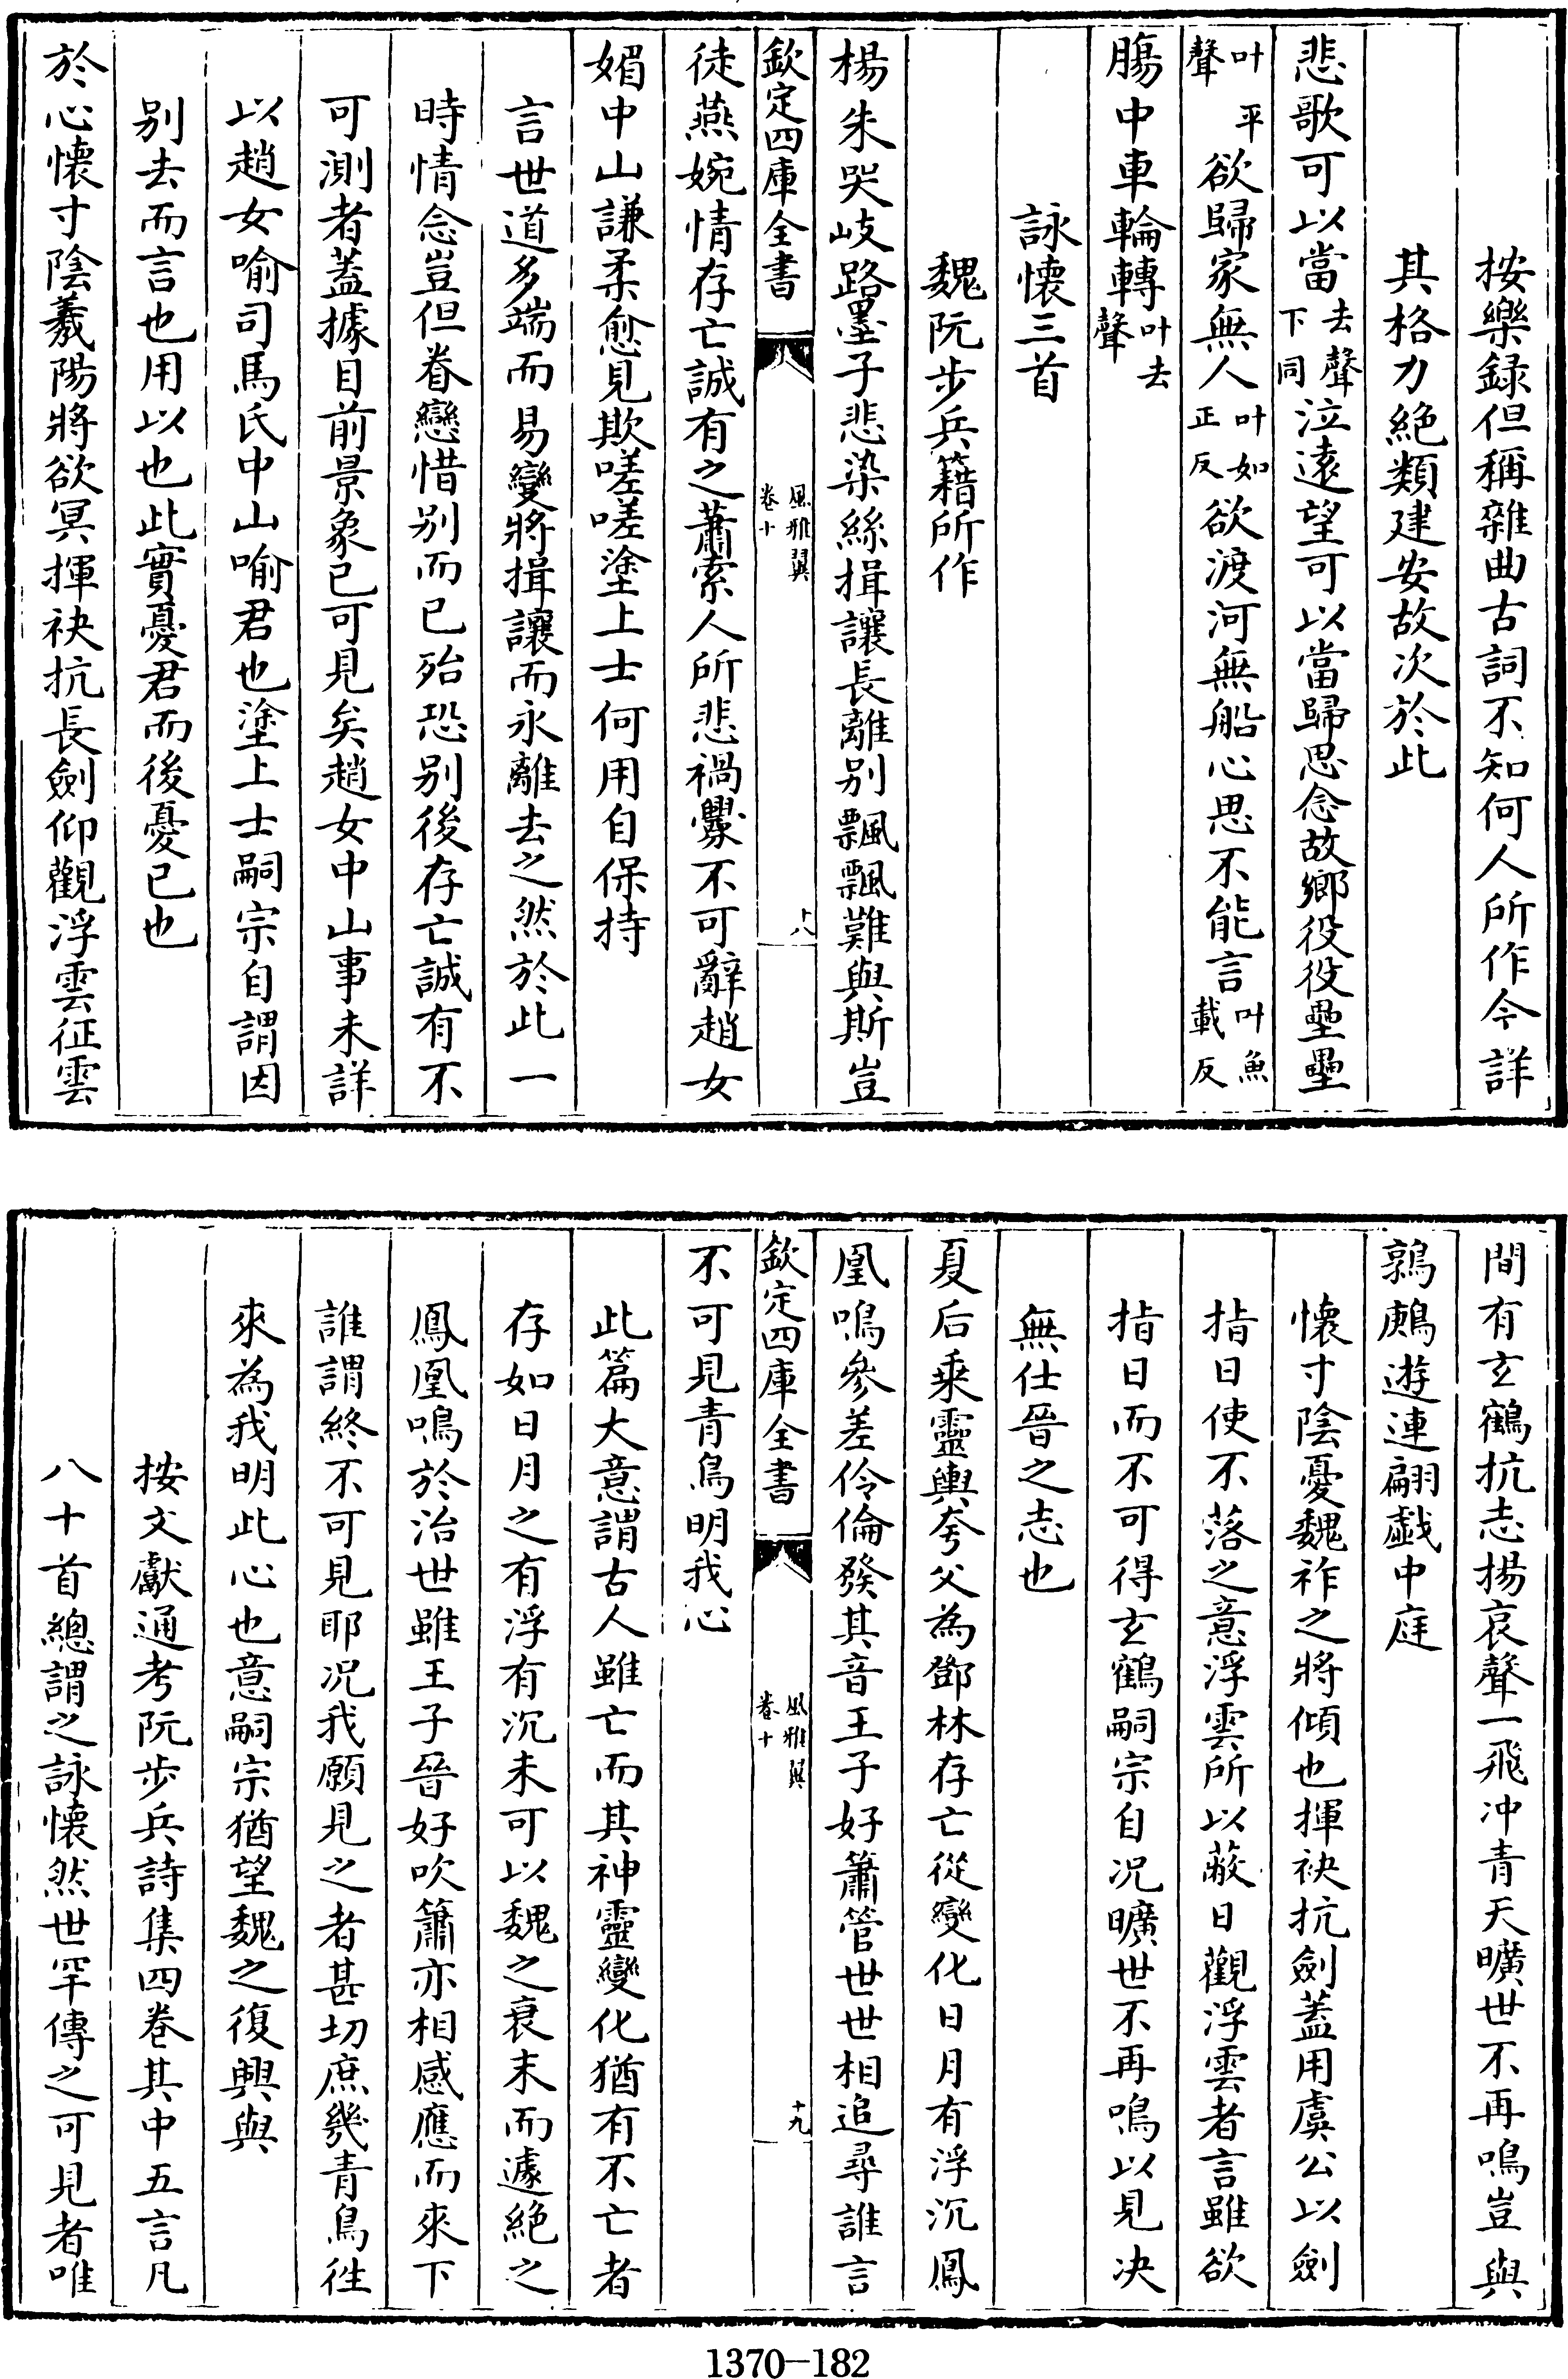 按樂録但稱雜曲古詞不知何人所作今詳
其格力絶類建安故次於此
悲歌可以當去聲下同泣遠望可以當歸思念故鄉役役壘壘
叶平聲欲歸家無人叶如正反欲渡河無船心思不能言叶魚載反
膓中車輪轉叶去聲
詠懷三首
魏阮步兵籍所作
楊朱哭岐路墨子悲染絲揖讓長離别飄飄難與斯豈
欽定四庫全書
風雅翼
卷十
十八
徒燕婉情存亡誠有之蕭索人所悲禍釁不可辭趙女
媚中山謙柔愈見欺嗟嗟塗上士何用自保持
言世道多端而易變將揖讓而永離去之然於此一
時情念豈但眷戀惜别而已殆恐别後存亡誠有不
可測者蓋據目前景象已可見矣趙女中山事未詳
以趙女喻司馬氏中山喻君也塗上士嗣宗自謂因
别去而言也用以也此實憂君而後憂已也
於心懷寸陰羲陽將欲冥揮袂抗長劍仰觀浮雲征雲
間有玄鶴抗志揚哀聲一飛冲青天曠世不再鳴豈與
鶉鷃遊連翩戲中庭
懷寸陰憂魏祚之將傾也揮袂抗劍蓋用虞公以劍
指日使不落之意浮雲所以蔽日觀浮雲者言雖欲
指日而不可得玄鶴嗣宗自况曠世不再鳴以見决
無仕晉之志也
夏后乘靈輿夸父為鄧林存亡從變化日月有浮沉鳳
凰鳴參差伶倫發其音王子好簫管世世相追尋誰言
欽定四庫全書
風雅翼
卷十
十九
不可見青鳥明我心
此篇大意謂古人雖亡而其神靈變化猶有不亡者
存如日月之有浮有沉未可以魏之衰末而遽絶之
鳳凰鳴於治世雖王子晉好吹簫亦相感應而來下
誰謂終不可見耶况我願見之者甚切庶幾青鳥徃
來為我明此心也意嗣宗猶望魏之復興與
按文獻通考阮步兵詩集四卷其中五言凡
八十首總謂之詠懷然世罕傳之可見者唯
1370—182